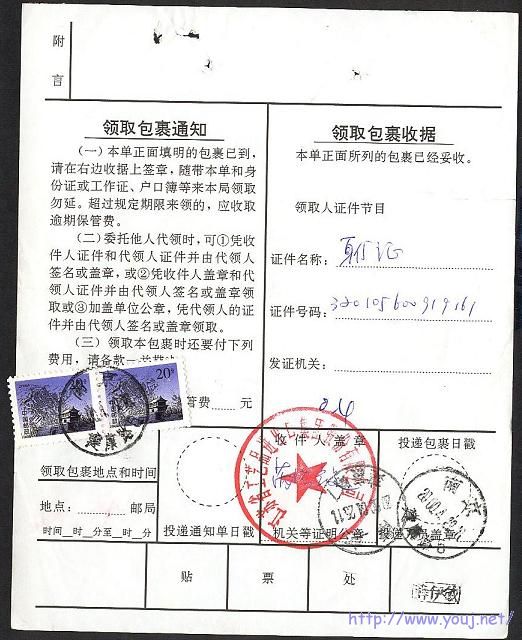 附
言
领取包裹通知
(一)本单正面填明的包裹已到,
请在右边收据上签章,随带本单和身
份证或工作证、户口簿等来本局领取
勿延。超过规定期限来领的,应收取
逾期保管费。
(二)委托他人代领时,可①凭收
件人证件和代领人证件并由代领人
签名或盖章,或②凭收件人盖章和代
领人证件并由代领人签名或盖章领
取或③加盖单位公章,凭代领人的证
件并由代领人签名或盖章领取。
(三)领取本包裹时还要付下列
费用,请备款一并
管费 元
20分
领取包裹地点和时间
地点: 邮局
时间 时 分至 时 分
投递通知单日戳
领取包裹收据
本单正面所列的包裹已经妥收。
领取人证件节目
证件名称:
证件号码:320105600919161
发证机关:
收件人盖章
机关等证明公章
投递包裹日戳
南京
投递员盖章
贴 票 处
http://www.youj.net/